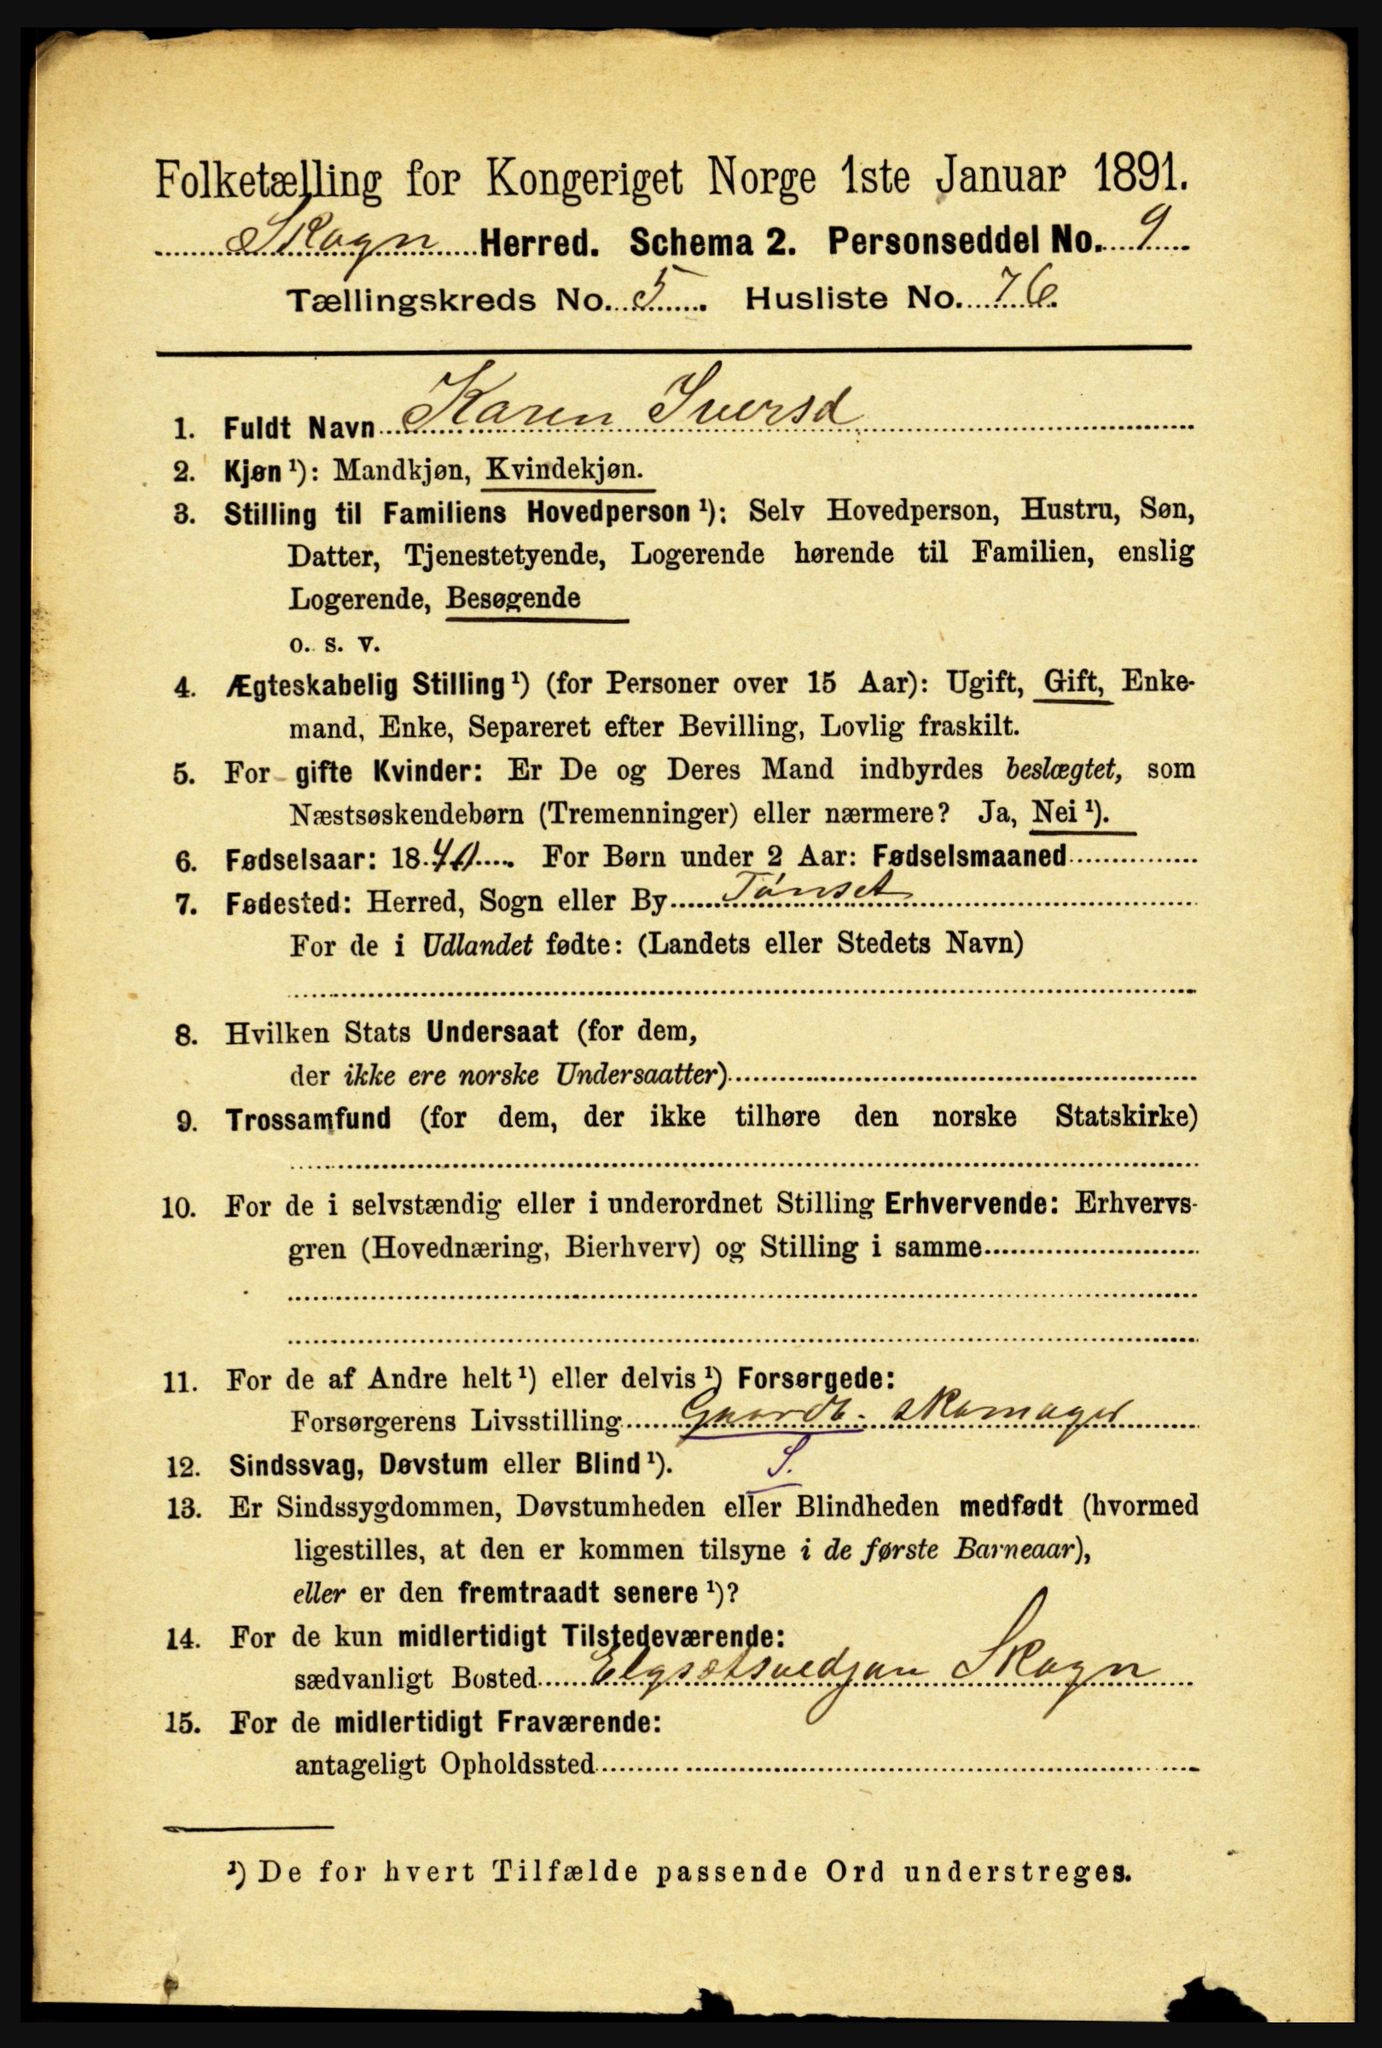 Folketælling for Kongeriget Norge 1ste Januar 1891.
Skogn Herred. Schema 2. Personseddel No. 9
Tællingskreds No. 5. Husliste No. 76.
1. Fuldt Navn Karen Iversd
2. Kjøn ¹): Mandkjøn, Kvindekjøn.
3. Stilling til Familiens Hovedperson ¹): Selv Hovedperson, Hustru, Søn,
Datter, Tjenestetyende, Logerende hørende til Familien, enslig
Logerende, Besøgende
o. s. v.
4. Ægteskabelig Stilling ¹) (for Personer over 15 Aar): Ugift, Gift, Enke-
mand, Enke, Separeret efter Bevilling, Lovlig fraskilt.
5. For gifte Kvinder: Er De og Deres Mand indbyrdes beslægtet, som
Næstsøskendebørn (Tremenninger) eller nærmere? Ja, Nei ¹).
6. Fødselsaar: 1840. For Børn under 2 Aar: Fødselsmaaned
7. Fødested: Herred, Sogn eller By Tønset
For de i Udlandet fødte: (Landets eller Stedets Navn)
8. Hvilken Stats Undersaat (for dem,
der ikke ere norske Undersaatter)
9. Trossamfund (for dem, der ikke tilhøre den norske Statskirke)
10. For de i selvstændig eller i underordnet Stilling Erhvervende: Erhvervs-
gren (Hovednæring, Bierhverv) og Stilling i samme
11. For de af Andre helt ¹) eller delvis ¹) Forsørgede:
Forsørgerens Livsstilling Gaardb. skomager
12. Sindssvag, Døvstum eller Blind ¹). S.
13. Er Sindssygdommen, Døvstumheden eller Blindheden medfødt (hvormed
ligestilles, at den er kommen tilsyne i de første Barneaar),
eller er den fremtraadt senere ¹)?
14. For de kun midlertidigt Tilstedeværende:
sædvanligt Bosted Elgsetsvedjan Skogn
15. For de midlertidigt Fraværende:
antageligt Opholdssted
¹) De for hvert Tilfælde passende Ord understreges.